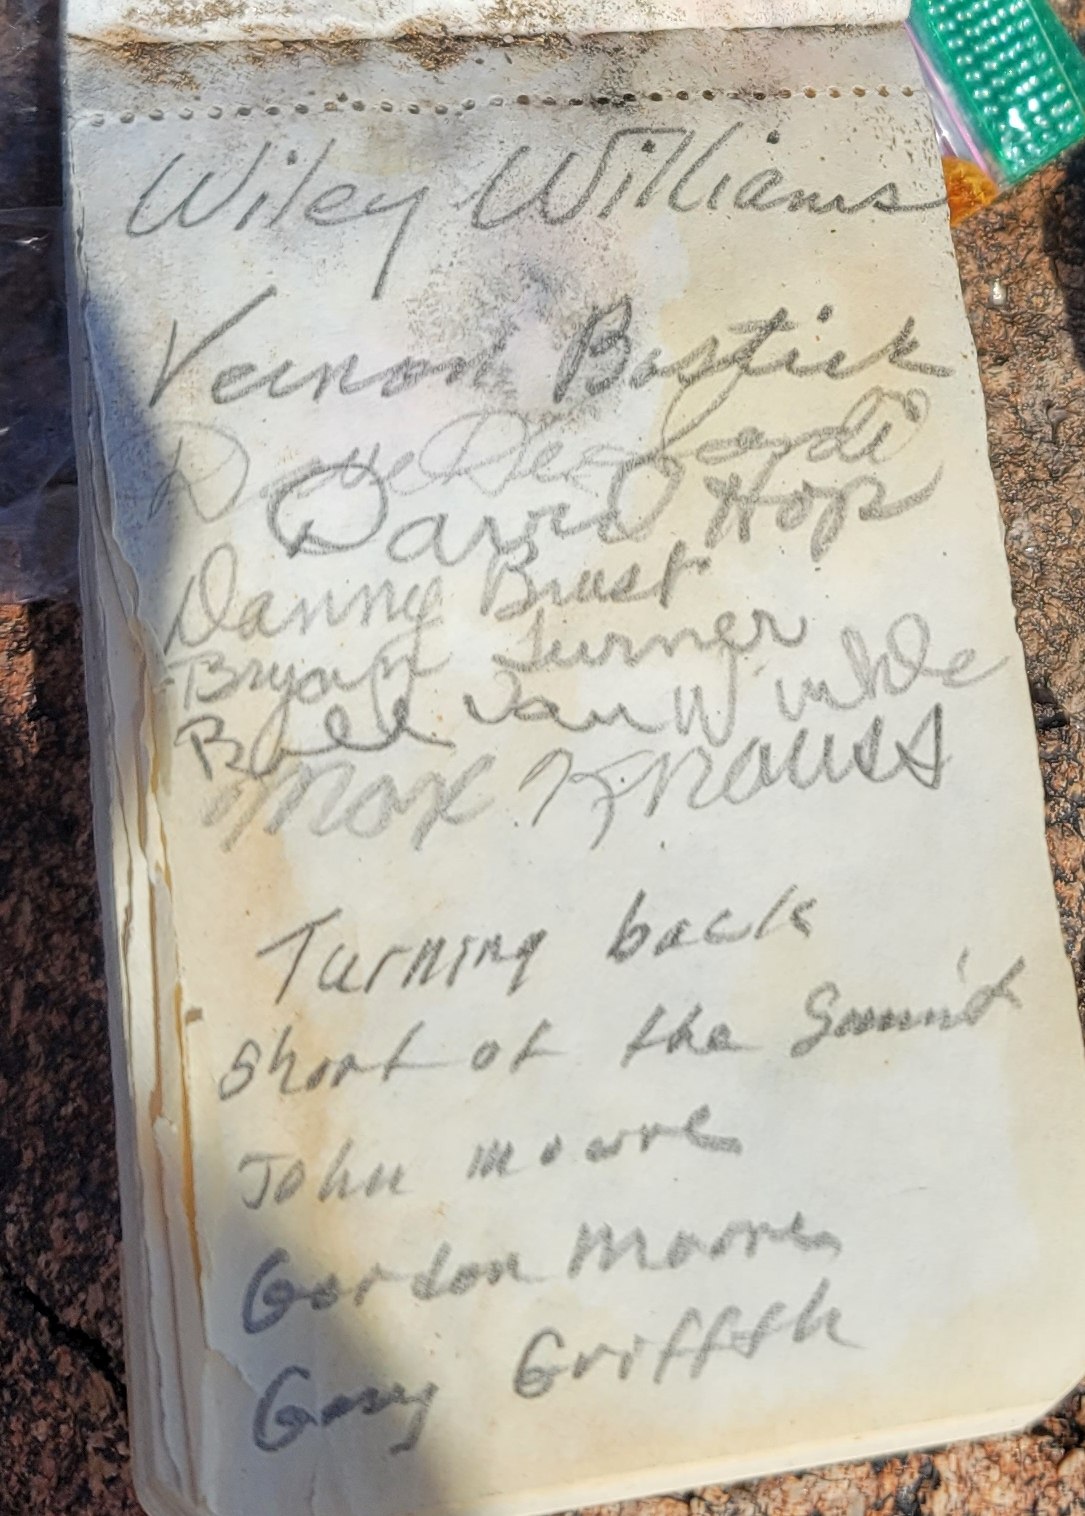 Wiley Williams
Vernon Bostick
Dave
David Hop
Danny Brust
Bryan Turner
Bill Van Winkle
Max Knauss
Turning back
short of the Summit
John Moore
Gordon Moore
Gary Griffith